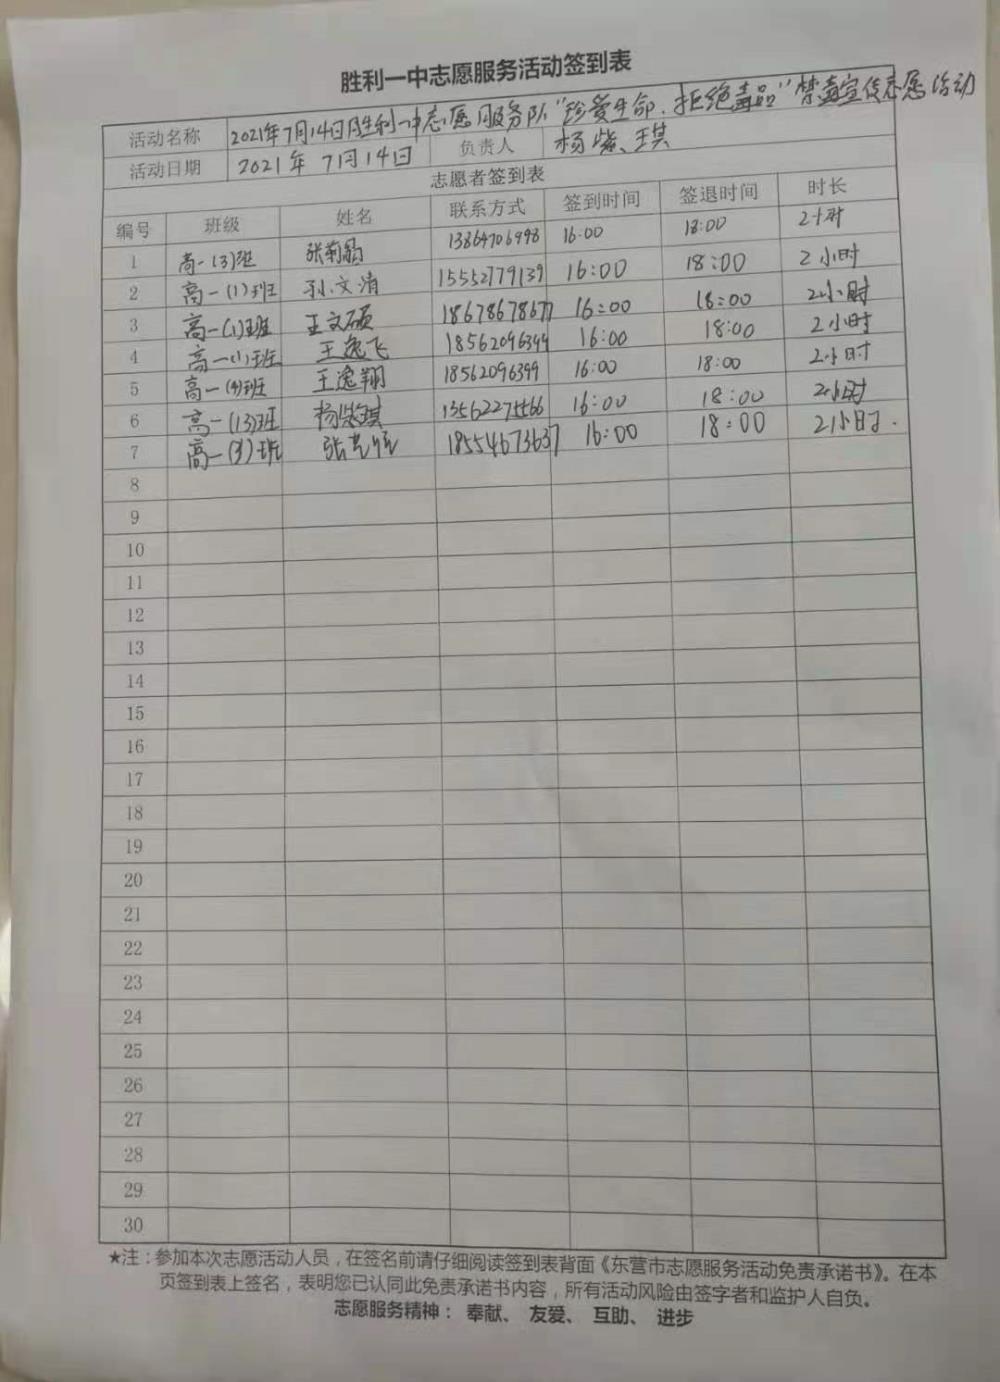 胜利一中志愿服务活动签到表
活动名称 2021年7月14日胜利一中志愿服务队"珍爱生命,拒绝毒品"禁毒宣传志愿活动
活动日期 2021年7月14日 负责人 杨紫琪
志愿者签到表
编号 班级 姓名 联系方式 签到时间 签退时间 时长
1 高一(3)班 13864706998 16:00 18:00 2小时
2 高一(1)班 孙文清 15552779139 16:00 18:00 2小时
3 高一(1)班 王文硕 18678678677 16:00 18:00 2小时
4 高一(1)班 王逸飞 18562096399 16:00 18:00 2小时
5 高一(4)班 王逸翔 18562096399 16:00 18:00 2小时
6 高一(13)班 杨紫琪 13562275566 16:00 18:00 2小时
7 高一 班 18554673637 16:00 18:00 2小时.
8
9
10
11
12
13
14
15
16
17
18
19
20
21
22
23
24
25
26
27
28
29
30
★注:参加本次志愿活动人员,在签名前请仔细阅读签到表背面《东营市志愿服务活动免责承诺书》。在本
页签到表上签名,表明您已认同此免责承诺书内容,所有活动风险由签字者和监护人自负。
志愿服务精神: 奉献、 友爱、 互助、 进步